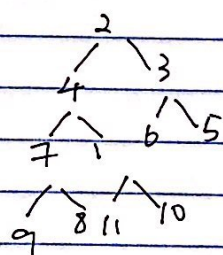 2
4 3
7 1 6 5
9 8 11 10